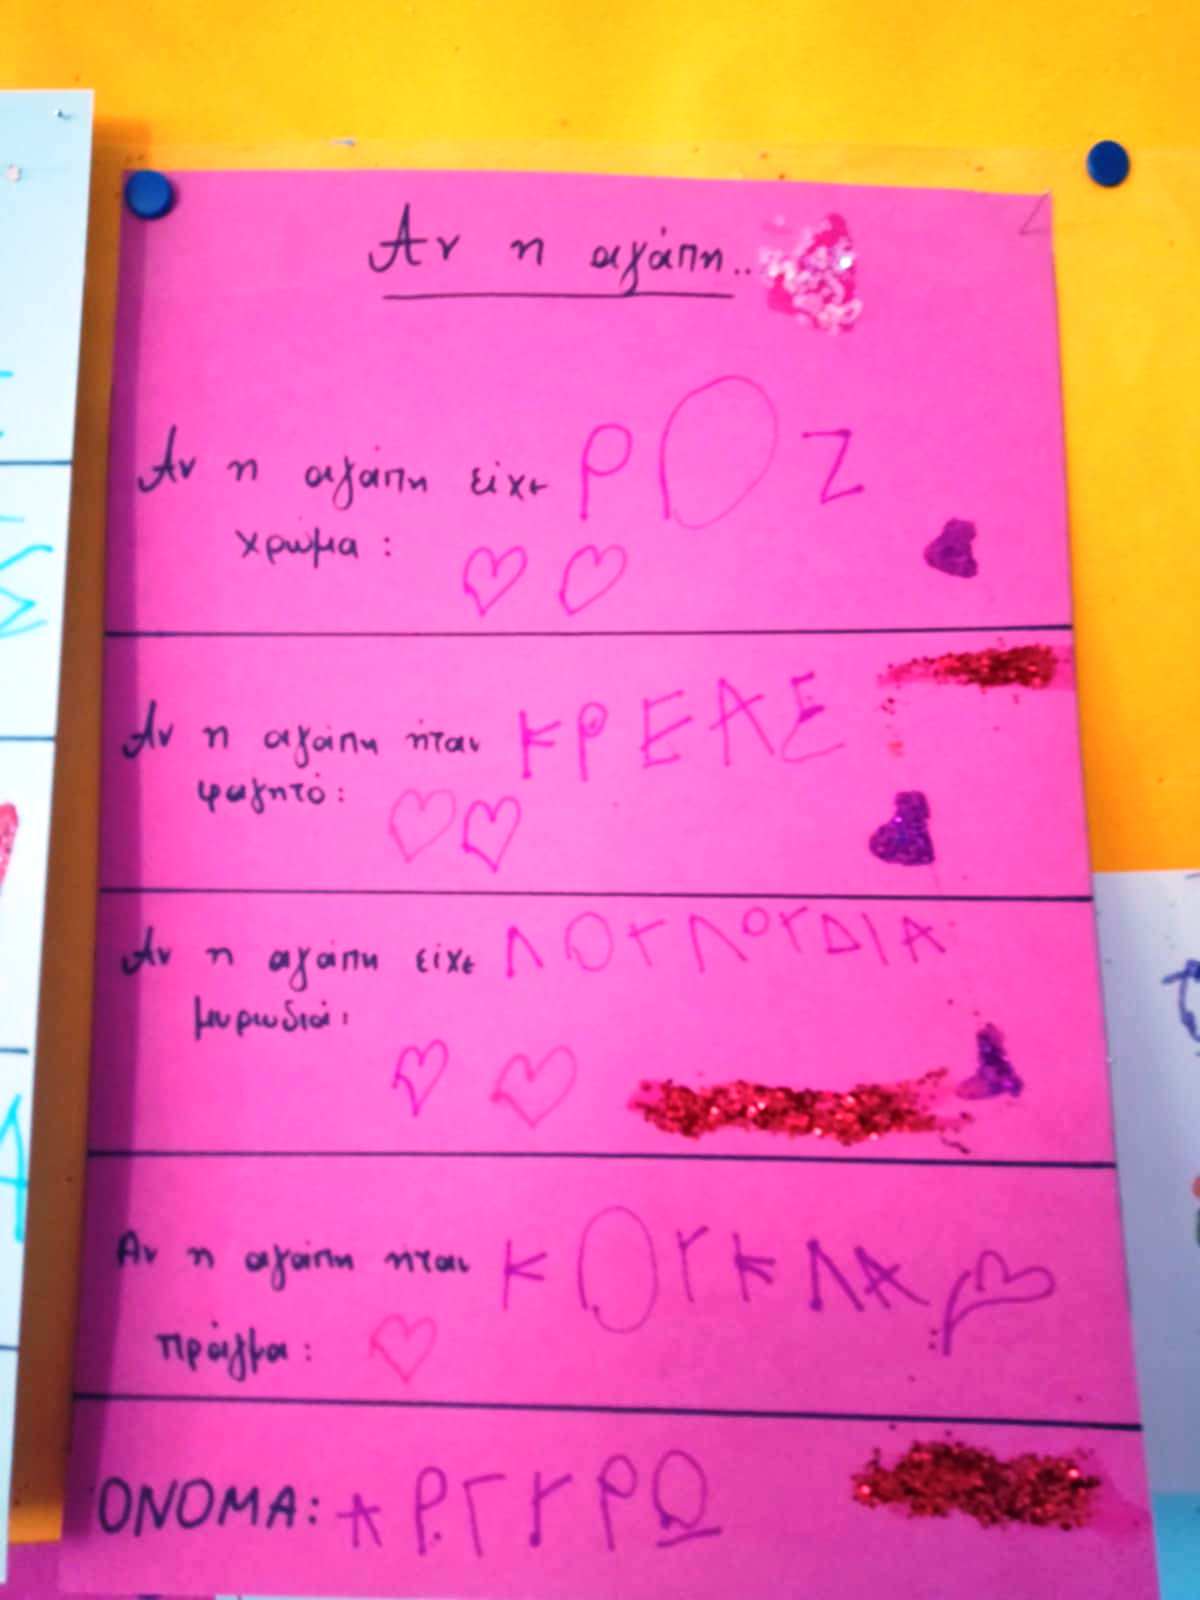 Αν η αγάπη...
Αν η αγάπη είχε ΡΟΖ
χρώμα:
Αν η αγάπη ήταν ΚΡΕΑΣ
φαγητό:
Αν η αγάπη είχε ΛΟΥΛΟΥΔΙΑ
μυρωδιά:
Αν η αγάπη ήταν ΚΟΥΚΛΑ
πράγμα:
ΟΝΟΜΑ: ΑΡΓΥΡΩ